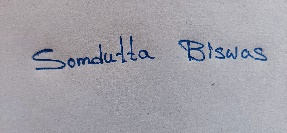 Somdutta Biswas